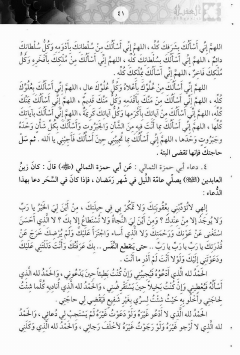 ٤١
اللهم إني أسألك بشرفك كله، اللهم إني أسألك من سلطانك بأدومه وكل سلطانك
دائم، اللهم إني أسألك بسلطانك كله، اللهم إني أسألك من ملكك بأفخره وكل
ملكك فاخر، اللهم إني أسألك بملكك كله.
اللهم إني أسألك من علوك بأعلاه وكل علوك عال، اللهم إني أسألك بعلوك
كله، اللهم إني أسألك من منك بأقدمه وكل منك قديم، اللهم إني أسألك بمنك
كله، اللهم إني أسألك من آياتك بأكرمها وكل آياتك كريمة، اللهم إني أسألك بآياتك
كلها، اللهم إني أسألك بما أنت فيه من الشأن والجبروت وأسألك بكل شأن وحده
وجبروت وحدها، اللهم إني أسألك بما تجيبني حين أسألك فأجبني يا الله. ثم سل
حاجتك فإنها تقضى البتة.
٤. دعاء أبي حمزة الثمالي: عن أبي حمزة الثمالي قال: كان زين
العابدين يصلي عامة الليل في شهر رمضان، فإذا كان في السحر دعا بهذا
الدعاء:
إلهي لا تؤدبني بعقوبتك ولا تمكر بي في حيلتك، من أين لي الخير يا رب
ولا يوجد إلا من عندك؟ ومن أين لي النجاة ولا تستطاع إلا بك؟ لا الذي أحسن
استغنى عن عونك ورحمتك ولا الذي أساء واجترأ عليك ولم يرضك خرج عن
قدرتك يا رب يا رب يا رب... حتى ينقطع النفس. بك عرفتك وأنت دللتني عليك
ودعوتني إليك ولولا أنت لم أدر ما أنت.
الحمد لله الذي أدعوه فيجيبني وإن كنت بطيئا حين يدعوني، والحمد لله الذي
أسأله فيعطيني وإن كنت بخيلا حين يستقرضني، والحمد لله الذي أناديه كلما شئت
لحاجتي وأخلو به حيث شئت لسري بغير شفيع فيقضي لي حاجتي.
الحمد لله الذي لا أدعو غيره ولو دعوت غيره لم يستجب لي دعائي، والحمد
لله الذي لا أرجو غيره ولو رجوت غيره لأخلف رجائي، والحمد لله الذي وكلني